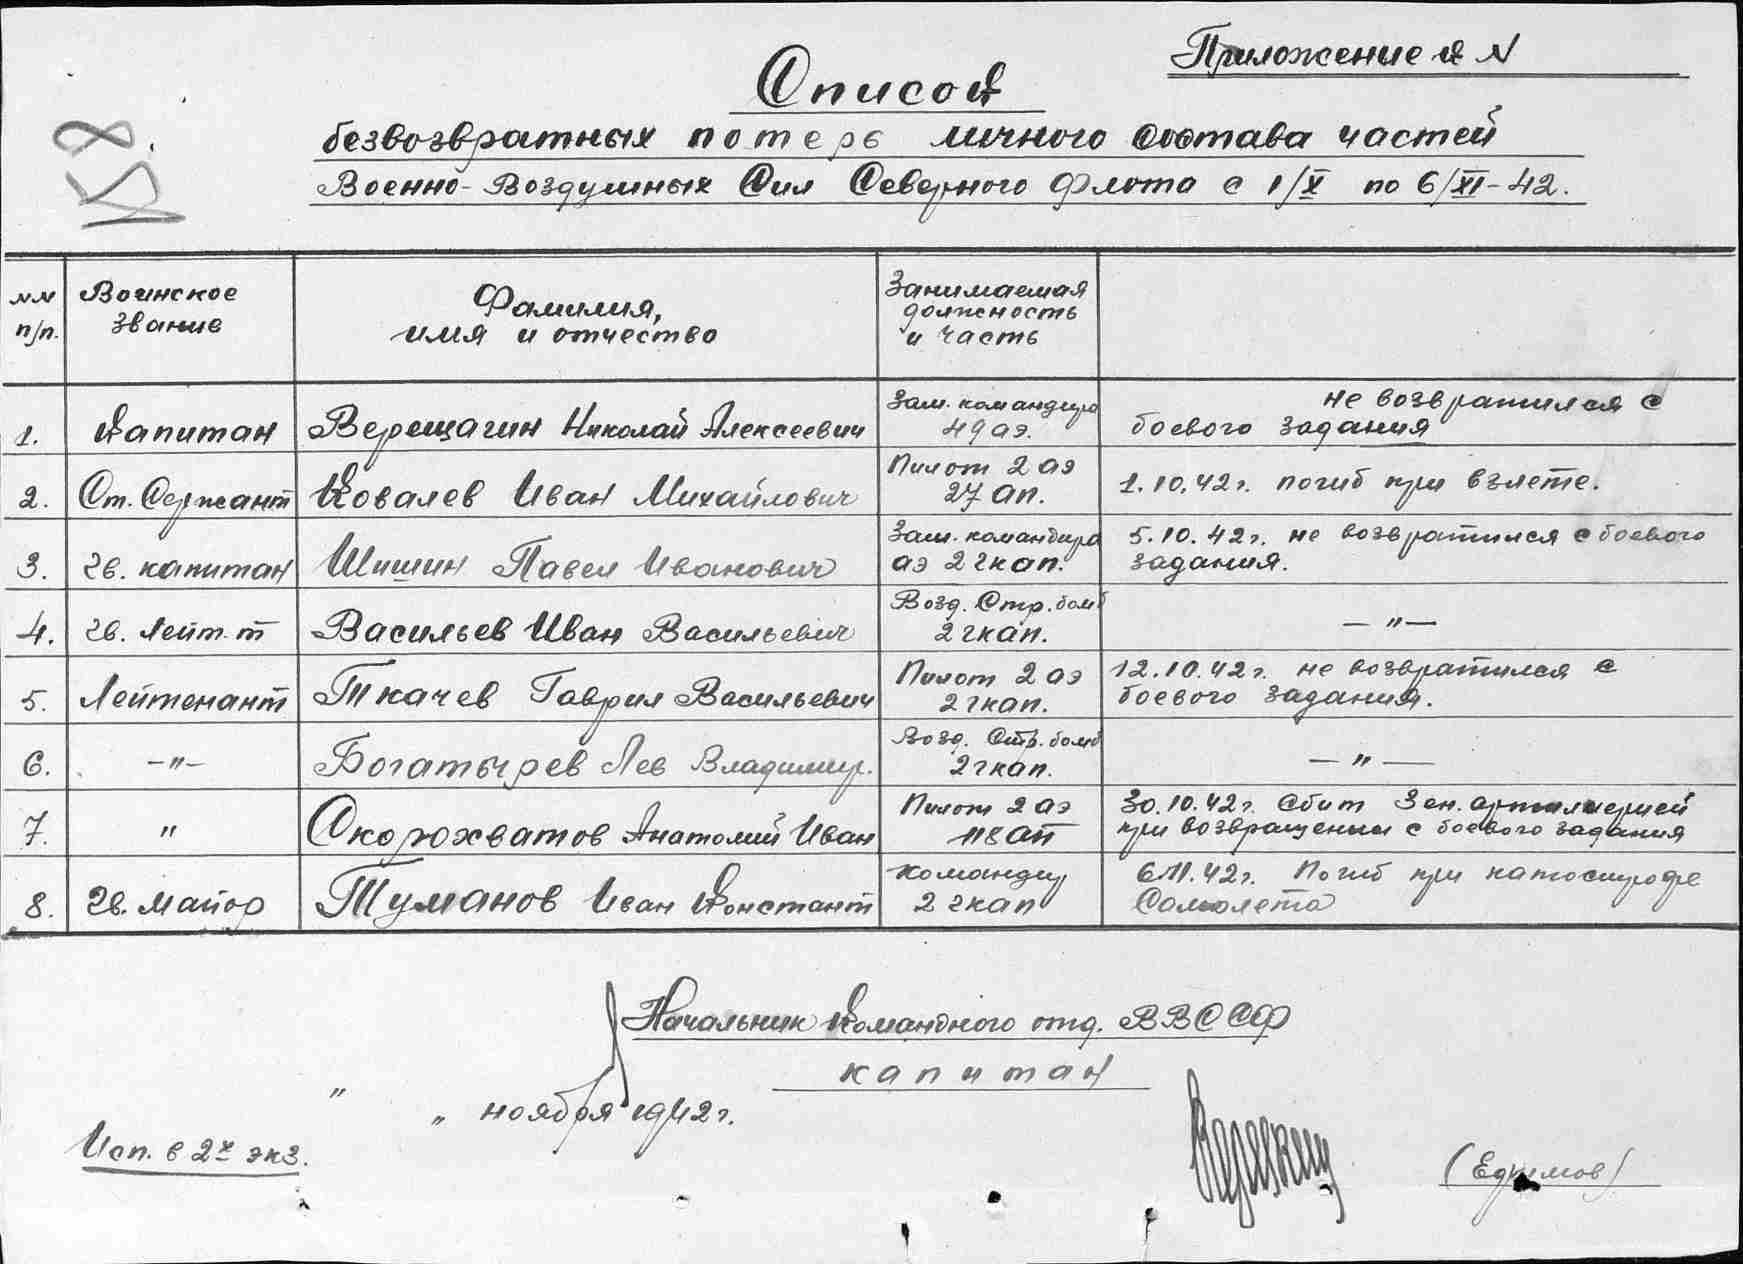 Приложение к №
Список
безвозвратных потерь личного состава частей
Военно-Воздушных Сил Северного Флота с 1/X по 6/XI-42.
№№ п/п. Воинское звание Фамилия, имя и отчество Занимаемая должность и часть
1. Капитан Верещагин Николай Алексеевич Зам. командира 49 аэ. не возвратился с боевого задания
2. Ст. Сержант Ковалев Иван Михайлович Пилот 2 аэ 27 ап. 1.10.42г. погиб при взлете.
3. гв. капитан Шишин Павел Иванович Зам. командира аэ 2 гкап. 5.10.42г. не возвратился с боевого задания.
4. гв. Лейт. т Васильев Иван Васильевич Возд. Стр. бомб 2 гкап. —"—
5. Лейтенант Ткачев Гаврил Васильевич Пилот 2 аэ 2 гкап. 12.10.42г. не возвратился с боевого задания.
6. —"— Богатырев Лев Владимир. Возд. Стр. бомб 2 гкап. —"—
7. " Скорохватов Анатолий Иван Пилот 2 аэ 118 ап 30.10.42г. Сбит Зен. артиллерией при возвращении с боевого задания
8. Гв. Майор Туманов Иван Константи Командир 2 гкап 6.11.42г. Погиб при катастрофе Самолета
Начальник Командного отд. ВВС СФ
капитан
" " ноября 1942г.
Исп. в 2х экз.
(Ефимов)